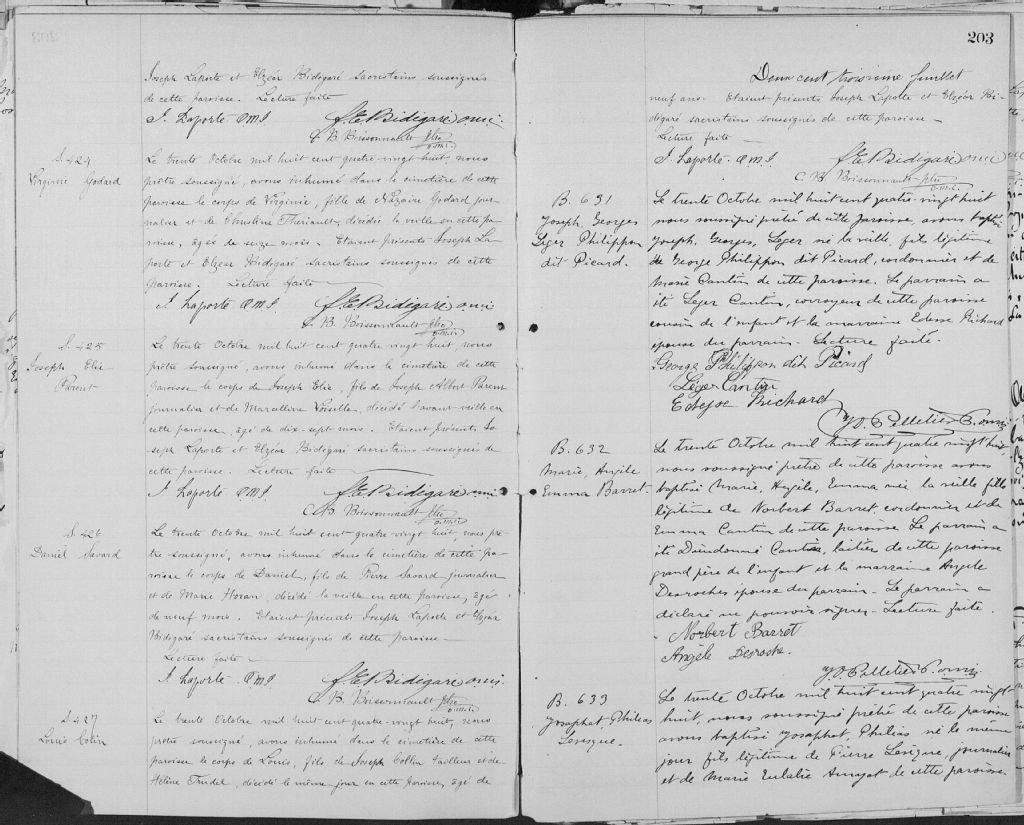 Joseph Laporte et Elzéar Bidégaré sacristains soussignés
de cette paroisse. Lecture faite
J. Laporte O.M.I. f. E. Bidigaré o.m.i.
C. B. Boissonnault ptre
o.m.i.
S. 424
Virginie Godard
Le trente Octobre mil huit cent quatre-vingt huit, nous
prêtre soussigné, avons inhumé dans le cimetière de cette
paroisse le corps de Virginie, fille de Nazaire Godard jour-
nalier et de Christine Theriault, décédée la veille en cette pa-
roisse, agée de seize mois. Etaient présents Joseph La-
porte et Elzéar Bidégaré sacristains soussignés de cette
paroisse. Lecture faite
J. Laporte O.M.I. f. E. Bidigaré o.m.i.
C. B. Boissonnault ptre
o.m.i.
S. 425
Joseph Elie
Parent
Le trente Octobre mil huit cent quatre vingt huit, nous
prêtre soussigné, avons inhumé dans le cimetière de cette
paroisse le corps de Joseph Elie, fils de Joseph Albert Parent
journalier et de Marcelline Voiselle, décédé l'avant-veille en
cette paroisse, agé de dix-sept mois. Etaient présents Jo-
seph Laporte et Elzéar Bidégaré sacristains soussignés de
cette paroisse. Lecture faite
J. Laporte O.M.I. f. E. Bidigaré o.m.i.
C. B. Boissonnault ptre
o.m.i.
S. 426
Daniel Savard
Le trente Octobre mil huit cent quatre-vingt huit, nous prê-
tre soussigné, avons inhumé dans le cimetière de cette pa-
roisse le corps de Daniel, fils de Pierre Savard journalier
et de Marie Horan, décédé la veille en cette paroisse, agé
de neuf mois. Etaient présents Joseph Laporte et Elzéar
Bidégaré sacristains soussignés de cette paroisse
Lecture faite
J. Laporte O.M.I. f. E. Bidigaré o.m.i.
C. B. Boissonnault ptre
o.m.i.
S. 427
Louis Colin
Le trente Octobre mil huit cent quatre-vingt huit, nous
prêtre soussigné, avons inhumé dans le cimetière de cette
paroisse le corps de Louis, fils de Joseph Collin tailleur et de
Hélène Trudel, décédé le même jour en cette paroisse, agé de
203
Deux cent troisième feuillet
neuf ans. Etaient présents Joseph Laporte et Elzéar Bi-
dégaré sacristains soussignés de cette paroisse
Lecture faite
J. Laporte O.M.I. f. E. Bidigaré o.m.i.
C. B. Boissonnault ptre
o.m.i.
B. 631
Joseph, Georges
Leger Philippon
dit Picard.
Le trente Octobre mil huit cent quatre vingt huit
nous soussigné prêtre de cette paroisse, avons baptisé
Joseph, Georges, Leger né la veille, fils légitime
de George Philippon dit Picard, cordonnier et de
Marie Cantin de cette paroisse. Le parrain a
été Leger Cantin, corroyeur de cette paroisse
cousin de l'enfant et la marraine Edesse Richard
epouse du parrain. Lecture faite.
George Philippon dit Picard
Léger Cantin
Edesse Richard
J. O. Pelletier P. o.m.i.
B. 632
Marie, Angèle
Emma Barret.
Le trente Octobre mil huit cent quatre vingt huit
nous soussigné prêtre de cette paroisse avons
baptisé Marie, Angèle, Emma née la veille fille
légitime de Norbert Barret, cordonnier et de
Emma Cantin de cette paroisse. Le parrain a
été Dieudonné Cantin, laitier de cette paroisse
grand père de l'enfant et la marraine Angèle
Desroches épouse du parrain. Le parrain a
déclaré ne pouvoir signer. Lecture faite.
Norbert Barret
Angèle Desroche.
J. O. Pelletier P. o.m.i.
B. 633
Josaphat Philéas
Levesque.
Le trente Octobre mil huit cent quatre vingt
huit, nous soussigné prêtre de cette paroisse
avons baptisé Josaphat, Philéas né le même
jour fils légitime de Pierre Lévêque, journalier
et de Marie Eulalie Amyot de cette paroisse